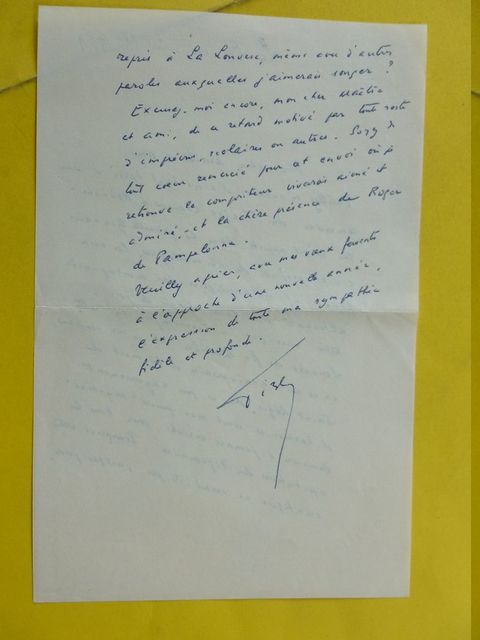 repris à La Louvesc, même avec d'autres
paroles auxquelles j'aimerais songer ?
Excusez-moi encore, mon cher Maître
et ami, de ce retard motivé par toute sorte
d'imprévus, scolaires ou autres. Soyez de
tout cœur remercié pour cet envoi où je
retrouve le compositeur vivarois aimé et
admiré, et la chère présence de Roger
de Pampelonne.
Veuillez agréer, avec mes vœux fervents
à l'approche d'une nouvelle année,
l'expression de toute ma sympathie
fidèle et profonde.